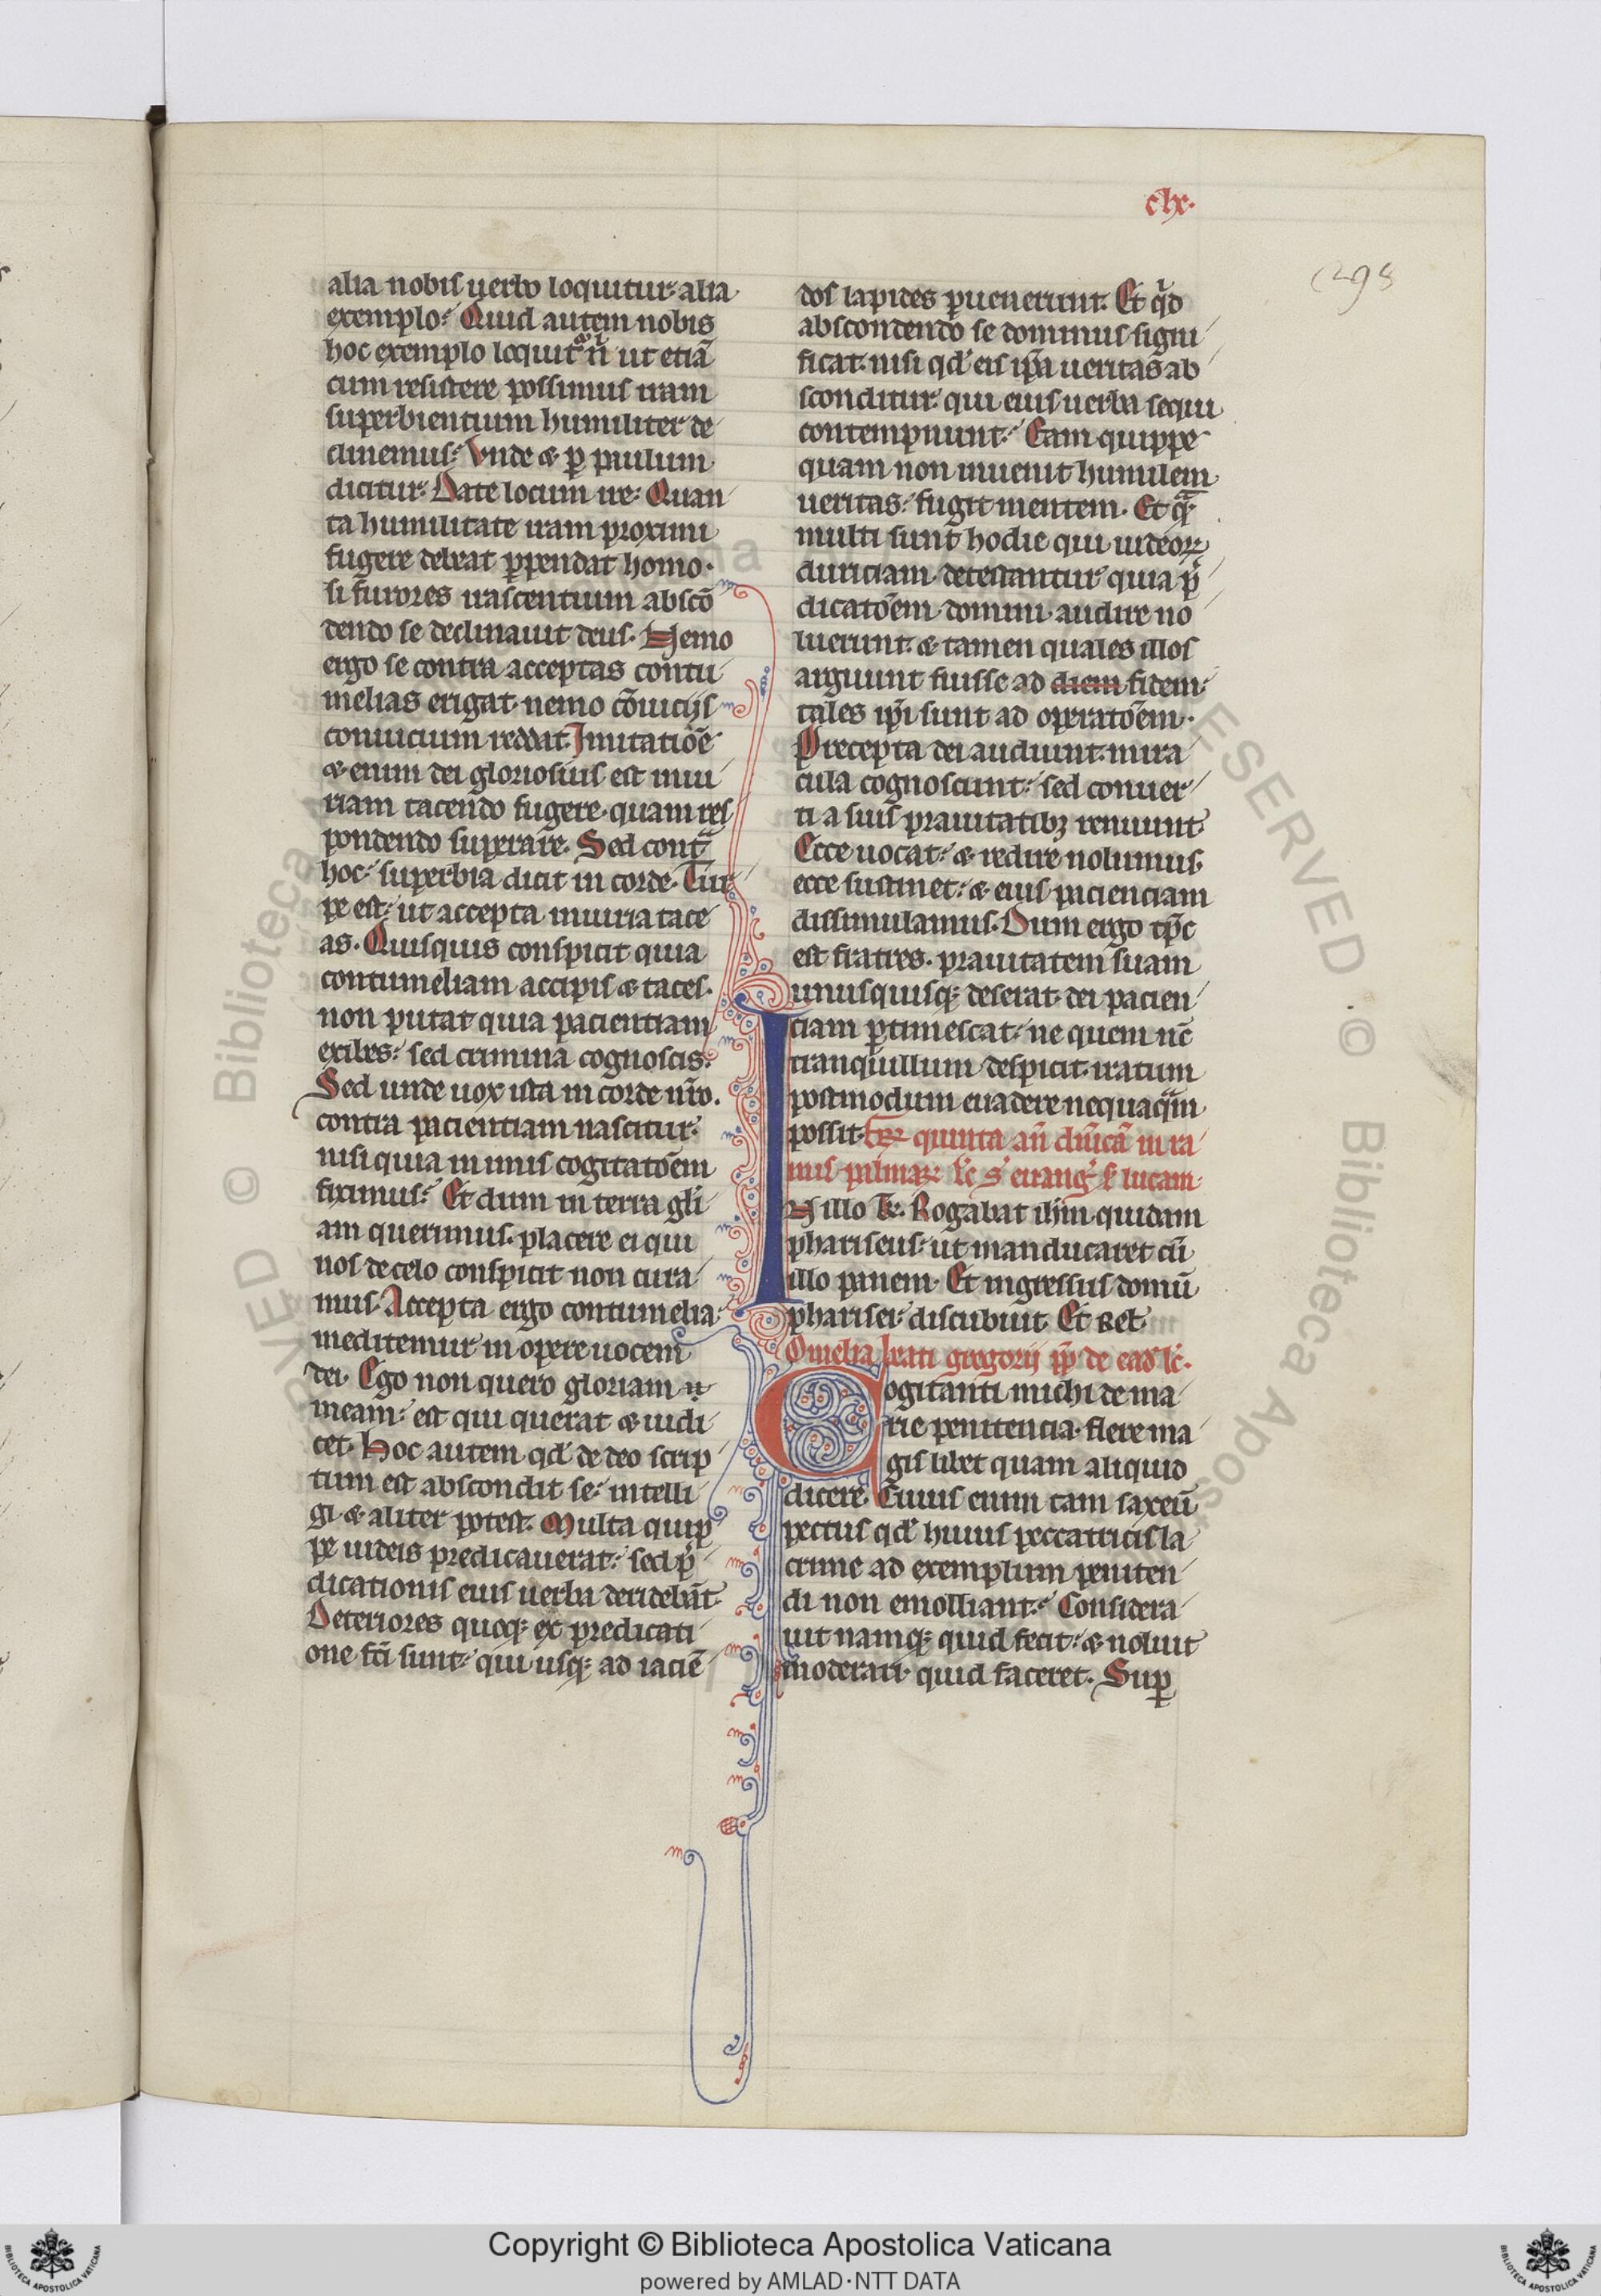 clx.
298
alia nobis uerbo loquitur· alia
exemplo. Quid autem nobis
hoc exemplo loquit᷑ n̄ ut etiā
cum resistere possimus iram
superbientium humiliter de
clinemus. Vnde & ꝑ paulum
dicitur. Date locum ire. Quan
ta humilitate iram proximi
fugere debeat ꝑpendat homo.
si furores irascentium abscō
dendo se declinauit deus. Nemo
ergo se contra acceptas contu
melias erigat. nemo cōuicijs
conuicium reddat. Imitatiōe
& enim dei gloriosius est iniu
riam tacendo fugere. quam res
pondendo superare. Sed contᵃ
hoc. superbia dicit in corde. Tur
pe est. ut accepta iniuria tace
as. Quisquis conspicit quia
contumeliam accipis & taces.
non putat quia pacientiam
exibes. sed crimina cognoscis.
Sed unde uox ista in corde nr̄o.
contra pacientiam nascitur.
nisi quia in imis cogitatōem
fiximus. Et dum in terra glī
am querimus. placere ei qui
nos de celo conspicit non cura
mus. Accepta ergo contumelia
meditemur in opere uocem
dei. Ego non quero gloriam
meam. est qui querat & iudi
cet. Hoc autem qđ de deo scrip
tum est abscondit se. intelli
gi & aliter potest. Multa quip
pe iudeis predicauerat. sed p̄
dicationis eius uerba deridebāt
Deteriores quoqꝫ ex predicati
one fc̄i sunt. qui usqꝫ ad iaciē
dos lapides ꝑuenerunt. Et qͥd
abscondendo se dominus signi
ficat. nisi qđ eis ip̄a ueritas ab
sconditur. qui eius uerba sequi
contempnunt. Eam quippe
quam non inuenit humilem
ueritas. fugit mentem. Et qᵃ
multi sunt hodie qui iudeoꝝ
duriciam detestantur quia p̄
dicatōem domini audire no
luerunt. & tamen quales illos
arguunt fuisse ad diem fidem.
tales ip̄i sunt ad operatōem.
Precepta dei audiunt. mira
cula cognoscunt. sed conuer
ti a suis prauitatibꝫ renuunt.
Ecce uocat. & redire nolumus.
ecce sustinet. & eius pacienciam
dissimulamus. Dum ergo tp̄c
est fratres. prauitatem suam
unusquisqꝫ deserat. dei pacien
ciam ꝑtimescat. ne quem nc̄
tranquillum despicit. iratum
postmodum euadere nequaqᵃm
possit. Feꝝ quinta añ dn̄icā in ra
mis palmaꝝ. lc̄ s' euang' s' lucam.
IN illo t̄. Rogabat ih̄m quidam
phariseus. ut manducaret cū
illo panem. Et ingressus domū
pharisei discubuit. Et rel̄.
Omelia beati gregorij pp̄ de eađ lc̄.
Cogitanti michi de ma
rie penitencia. flere ma
gis libet quam aliquid
dicere. Cuius enim tam saxeū
pectus qđ huius peccatricis la
crime ad exemplum peniten
di non emolliant. Considera
uit namqꝫ quid fecit. & noluit
moderari quid faceret. Suꝑ
Copyright © Biblioteca Apostolica Vaticana
powered by AMLAD·NTT DATA